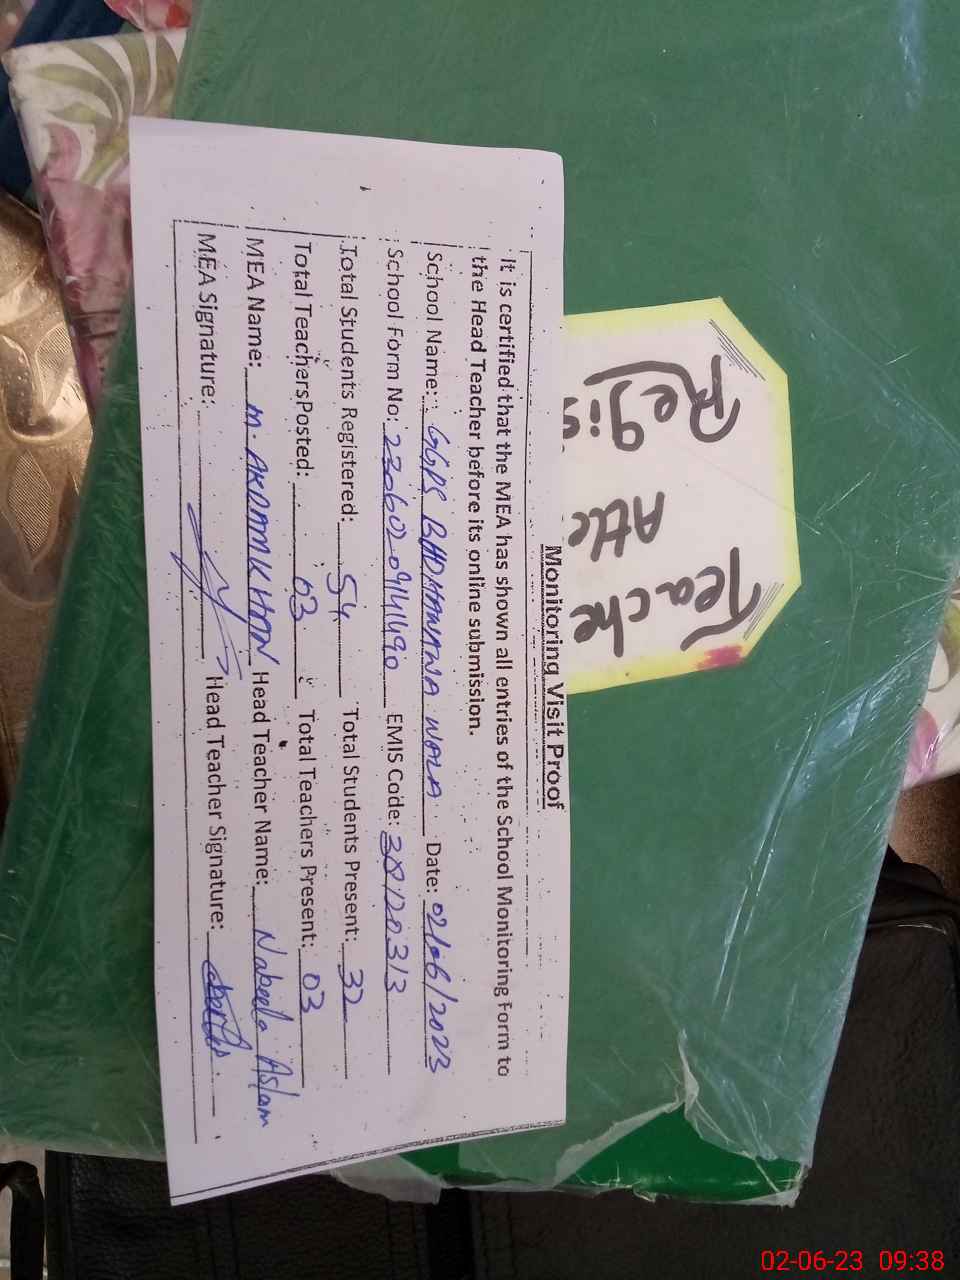 Monitoring Visit Proof
It is certified that the MEA has shown all entries of the School Monitoring Form to
the Head Teacher before its online submission.
School Name: GGPS BADHANAWA WALA Date: 02/06/2023
School Form No: 230602-0941490 EMIS Code: 38120313
Total Students Registered: 54 Total Students Present: 32
Total TeachersPosted: 03 Total Teachers Present: 03
MEA Name: M. AKRAM KHAN Head Teacher Name: Nabeela Aslam
MEA Signature: Head Teacher Signature:
Teache
Atte
Regis
02-06-23 09:38